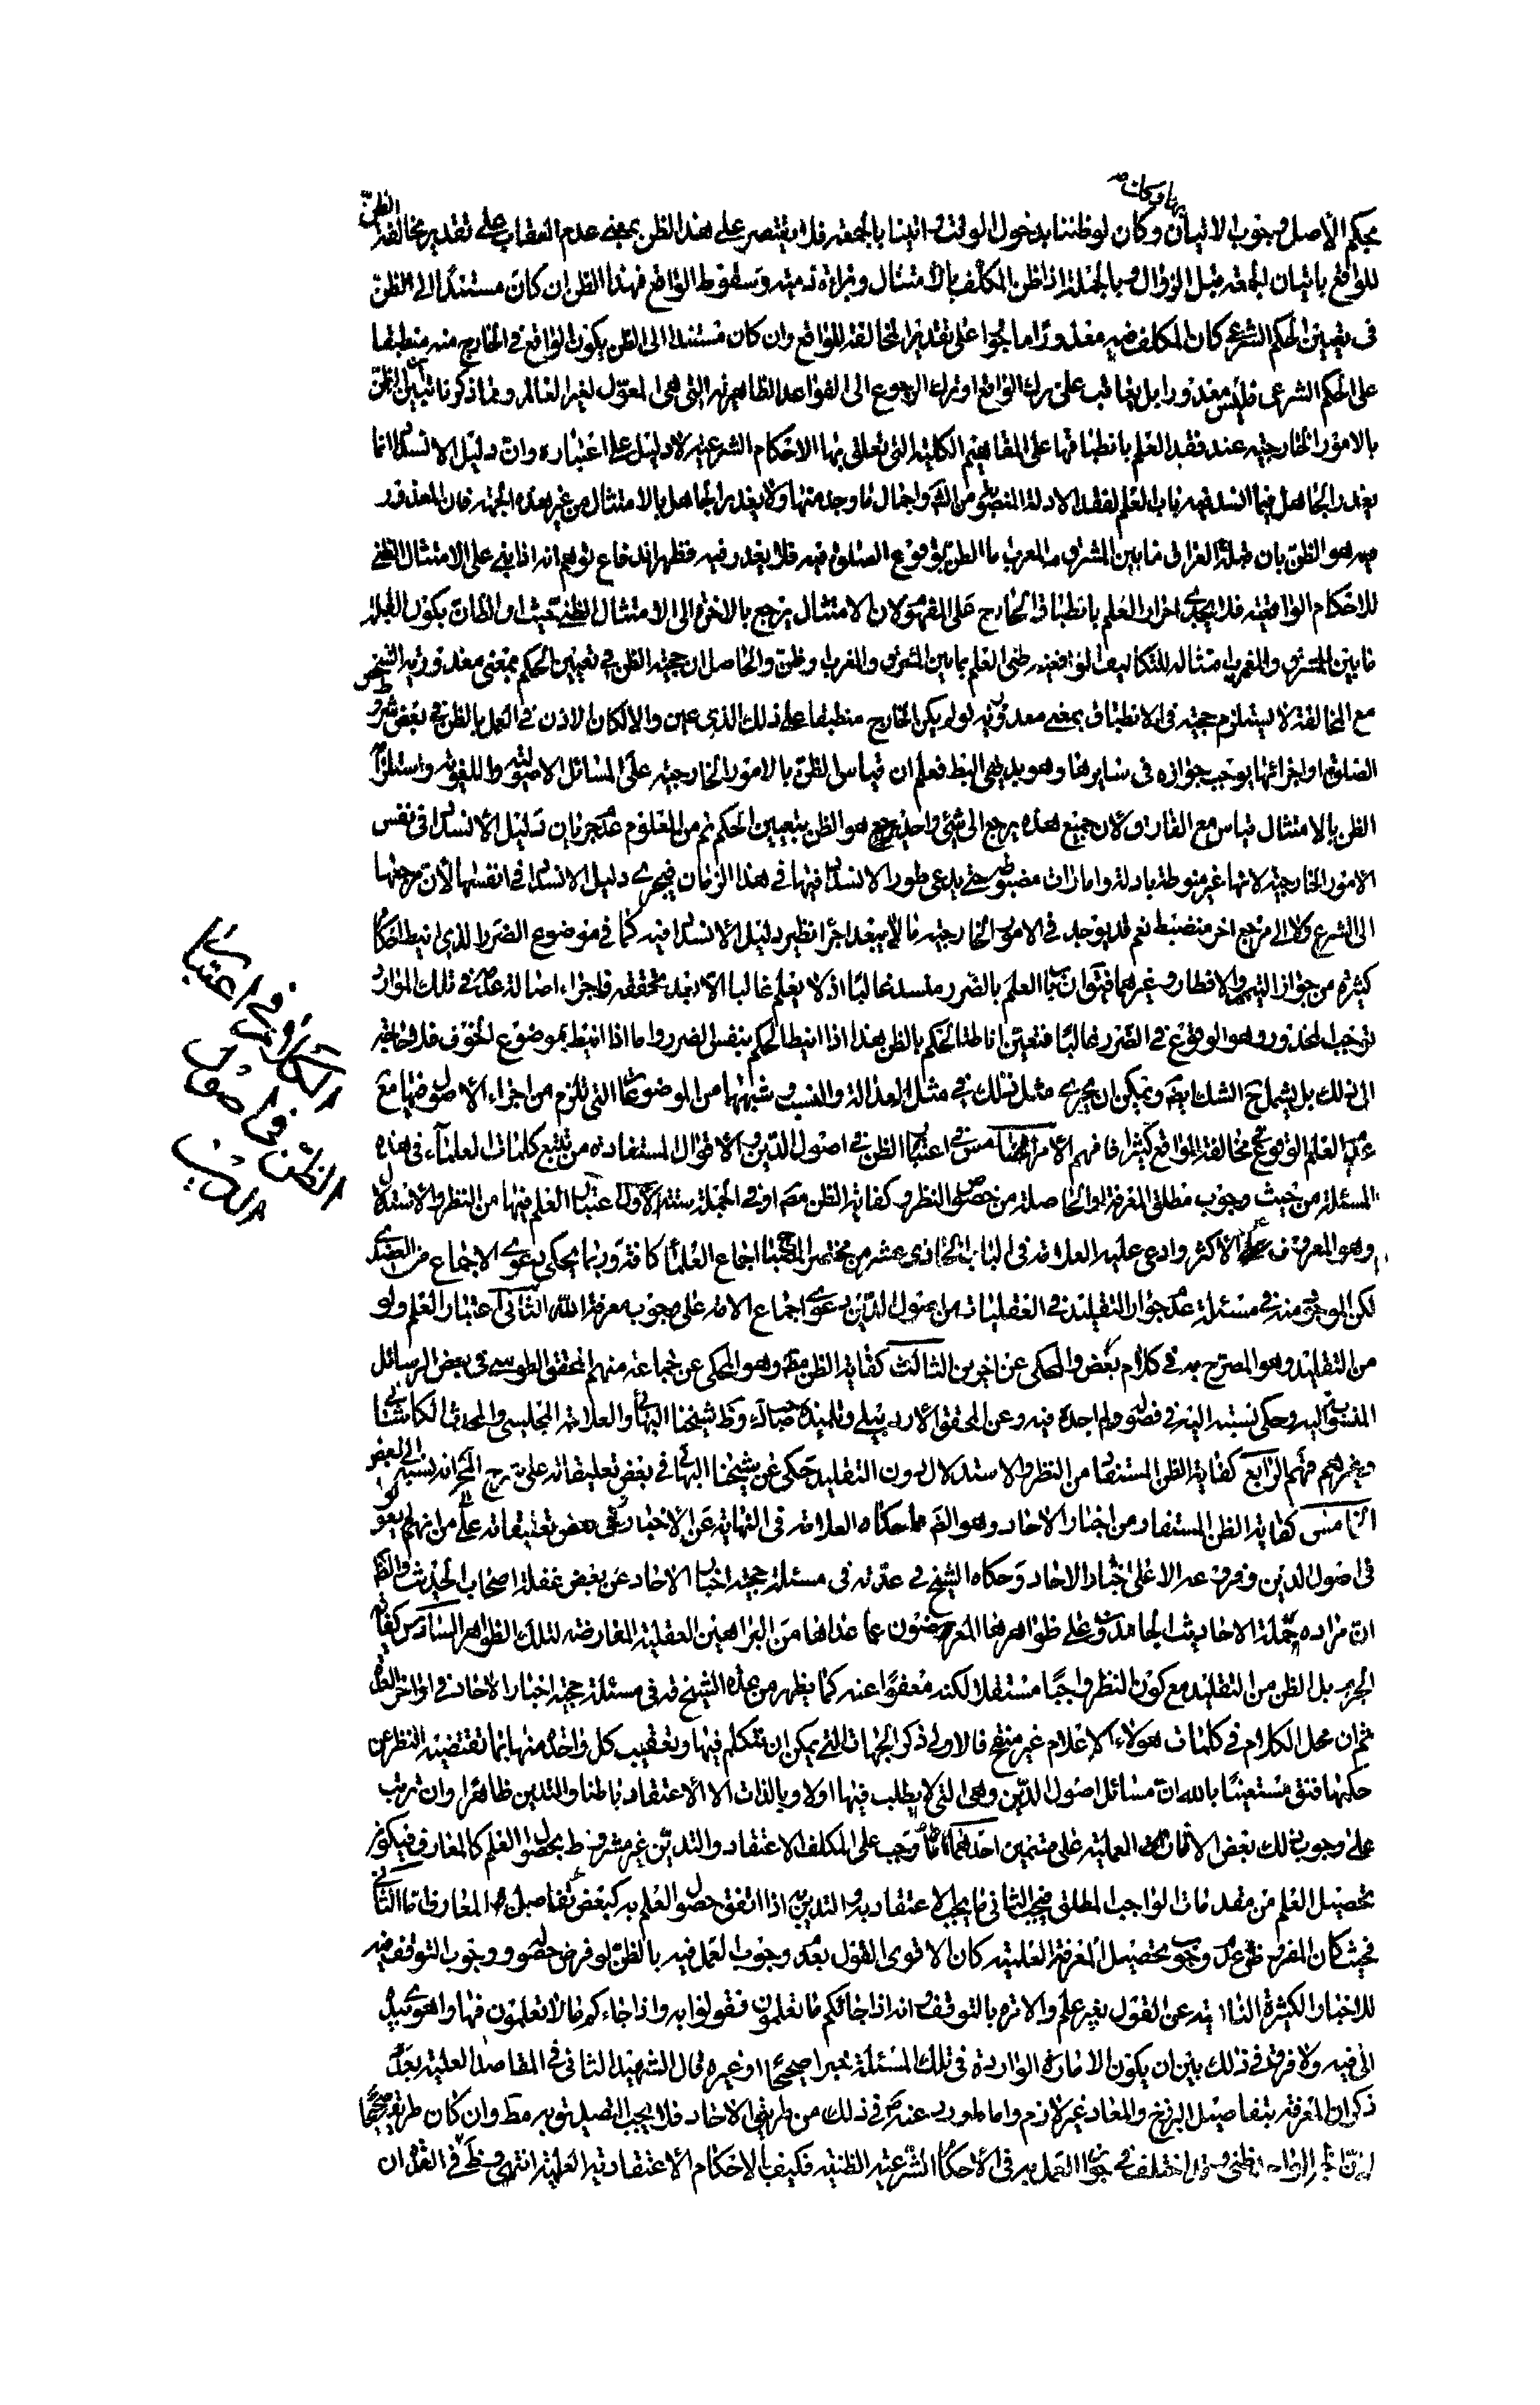 بحكم الأصل وجوب الاتيان وكان لو ظننا بدخول الوقت واتينا بالجمعة فلا يقتصر على هذا الظن بمعنى عدم العقاب على تقدير مخالفة الظن
للواقع باتيان الجمعة قبل الزوال وبالجملة اذا ظن المكلف بالامتثال وبراءة ذمته وسقوط الواقع فهذا الظن ان كان مستندا الى الظن
في تعيين الحكم الشرعى كان المكلف فيه معذورا ماجورا على تقدير المخالفة للواقع وان كان مستندا الى الظن بكون الواقع في الخارج منه منطبقا
على الحكم الشرعى فليس معذورا بل يعاقب على ترك الواقع او ترك الرجوع الى القواعد الظاهرية التى هى المعول لغير العالم ومما ذكرنا تبين ان الظن
بالامور الخارجية عند فقد العلم بانطباقها على المفاهيم الكلية التى تعلق بها الاحكام الشرعية لا دليل على اعتباره وان دليل الانسداد انما
يعذر الجاهل فيما انسد فيه باب العلم لفقد الادلة المنصوبة من الشارع واجمال ما وجد منها ولا يعذر الجاهل بالامتثال من غير هذه الجهة فان المعذور
فيه هو الظن بان قبلة العراق ما بين المشرق والمغرب اما الظن بوقوع الصلوة فيه فلا يعذر فيه فظهر اندفاع توهم انه اذا بنى على الامتثال الظنى
للاحكام الواقعية فلا يجدى احراز العلم بانطباق الخارج على المفهوم لان الامتثال يرجع بالاخرة الى الامتثال الظنى حيث ان الظان بكون القبلة
ما بين المشرق والمغرب امتثاله للتكاليف الواقعية ظنى علم بما بين المشرق والمغرب او ظن والحاصل ان حجية الظن في تعيين الحكم بمعنى معذورية الشخص
مع المخالفة لا يستلزم حجيته في الانطباق بمعنى معذوريته لو لم يكن الخارج منطبقا على ذلك الذى عين والا لكان الاذن في العمل بالظن في بعض شروط
الصلوة او اجزائها يوجب جوازه في سايرها وهو بديهى البط فعلم ان قياس الظن بالامور الخارجية على المسائل الاصولية واللغوية واستلزامهما
الظن بالامتثال قياس مع الفارق لان جميع هذه يرجع الى شىء واحد هو الظن بتعيين الحكم ثم من المعلوم عدم جريان دليل الانسداد في نفس
الامور الخارجية لانها غير منوطة بادلة وامارات مضبوطة حتى يدعى طرو الانسداد فيها في هذا الزمان فيجرى دليل الانسداد في انفسها لان مرجعها
الى الشرع ولا الى مرجع اخر منضبط نعم قد يوجد في الامور الخارجية ما لا يبعد اجراء نظير دليل الانسداد فيه كما في موضوع الضرر الذى انيط احكام
كثيرة من جواز التيمم والافطار وغيرهما فيق ان باب العلم بالضرر منسد غالبا اذ لا يعلم غالبا الا بعد تحققه فاجراء اصالة عدمه في تلك الموارد
يوجب المحذور وهو الوقوع في الضرر غالبا فتعين اناطة الحكم بالظن هذا اذا انيط الحكم بنفس الضرر واما اذا انيط بموضوع الخوف فلا حاجة
الى ذلك بل يشمل ح الشك ايضا ويمكن ان يجرى مثل ذلك في مثل العدالة والنسب وشبههما من الموضوعات التى تلزم من اجراء الاصول فيها مع
عدم العلم الوقوع في مخالفة الواقع كثيرا فافهم الامر الخامس في اعتبار الظن في اصول الدين والاقوال المستفادة من تتبع كلمات العلماء في هذه
المسئلة من حيث وجوب مطلق المعرفة او الحاصلة من خصوص النظر وكفاية الظن مط او في الجملة ستة الاول اعتبار العلم فيها من النظر والاستدلال
وهو المعروف عن الاكثر وادعى عليه العلامة في الباب الحادى عشر من مختصر المصباح اجماع العلماء كافة وربما يحكى دعوى الاجماع من العضدى
لكن الموجود منه في مسئلة عدم جواز التقليد في العقليات من اصول الدين دعوى اجماع الامة على وجوب معرفة الله الثانى اعتبار العلم ولو
من التقليد وهو المصرح به في كلام بعض والمحكى عن اخرين الثالث كفاية الظن مط وهو المحكى عن جماعة منهم المحقق الطوسى في بعض الرسائل
المنسوبة اليه وحكى نسبته اليه في فصوله ولم اجده فيه وعن المحقق الاردبيلى وتلميذه صاحب المدارك وظ شيخنا البهائى والعلامة المجلسى والمحدث الكاشانى
وغيرهم قدهم الرابع كفاية الظن المستفاد من النظر والاستدلال دون التقليد حكى عن شيخنا البهائى في بعض تعليقاته على شرح المختصر انه نسبه الى بعض
الخامس كفاية الظن المستفاد من اخبار الاحاد وهو الظ مما حكاه العلامة في النهاية عن الاخباريين من انهم لم يعولوا
في اصول الدين وفروعه الا على اخبار الاحاد وحكاه الشيخ في عدته في مسئلة حجية اخبار الاحاد عن بعض غفلة اصحاب الحديث والظ
ان مراده حملة الاحاديث الجامدون على ظواهرها المعرضون عما عداها من البراهين العقلية المعارضة لتلك الظواهر السادس كفاية
الجزم بل الظن من التقليد مع كون النظر واجبا مستقلا لكنه معفوا عنه كما يظهر من عدة الشيخ قده في مسئلة حجية اخبار الاحاد وفي اواخر العدة
ثم ان محل الكلام في كلمات هؤلاء الاعلام غير منقح فالاولى ذكر الجهات التى يمكن ان نتكلم فيها وتعقيب كل واحدة منها بما تقتضيه النظر من
حكمها فنق مستعينا بالله ان مسائل اصول الدين وهى التى لا يطلب فيها اولا وبالذات الا الاعتقاد باطنا والتدين ظاهرا وان ترتب
على وجوب ذلك بعض الاثار العملية على قسمين احدهما ما وجب على المكلف الاعتقاد والتدين غير مشروط بحصول العلم كالمعارف فيكون
تحصيل العلم من مقدمات الواجب المطلق فيجب الثانى ما يجب الاعتقاد به والتدين به اذا اتفق حصول العلم به كبعض تفاصيل المعارف اما الثانى
فحيث كان المفروض عدم وجوب تحصيل المعرفة العلمية كان الاقوى القول بعدم وجوب العمل فيه بالظن لو فرض حصوله ووجوب التوقف فيه
للاخبار الكثيرة الناهية عن القول بغير علم والامرة بالتوقف وانه اذا جائكم ما تعلمون فقولوا به واذا جاءكم ما لا تعلمون فها واهوى بيده
الى فيه ولا فرق في ذلك بين ان يكون الامارة الواردة في تلك المسئلة خبرا صحيحا او غيره قال الشهيد الثانى في المقاصد العلية بعد
ذكر ان المعرفة بتفاصيل البرزخ والمعاد غير لازم واما ما ورد عنه ص في ذلك من طريق الاحاد فلا يجب التصديق به مط وان كان طريقه صحيحا
لان الخبر الواحد ظنى وقد اختلف في جواز العمل به في الاحكام الشرعية الظنية فكيف بالاحكام الاعتقادية العلمية انتهى وظ الشيخ في العدة ان
الكلام في اعتبار
الظن في اصول
الدين